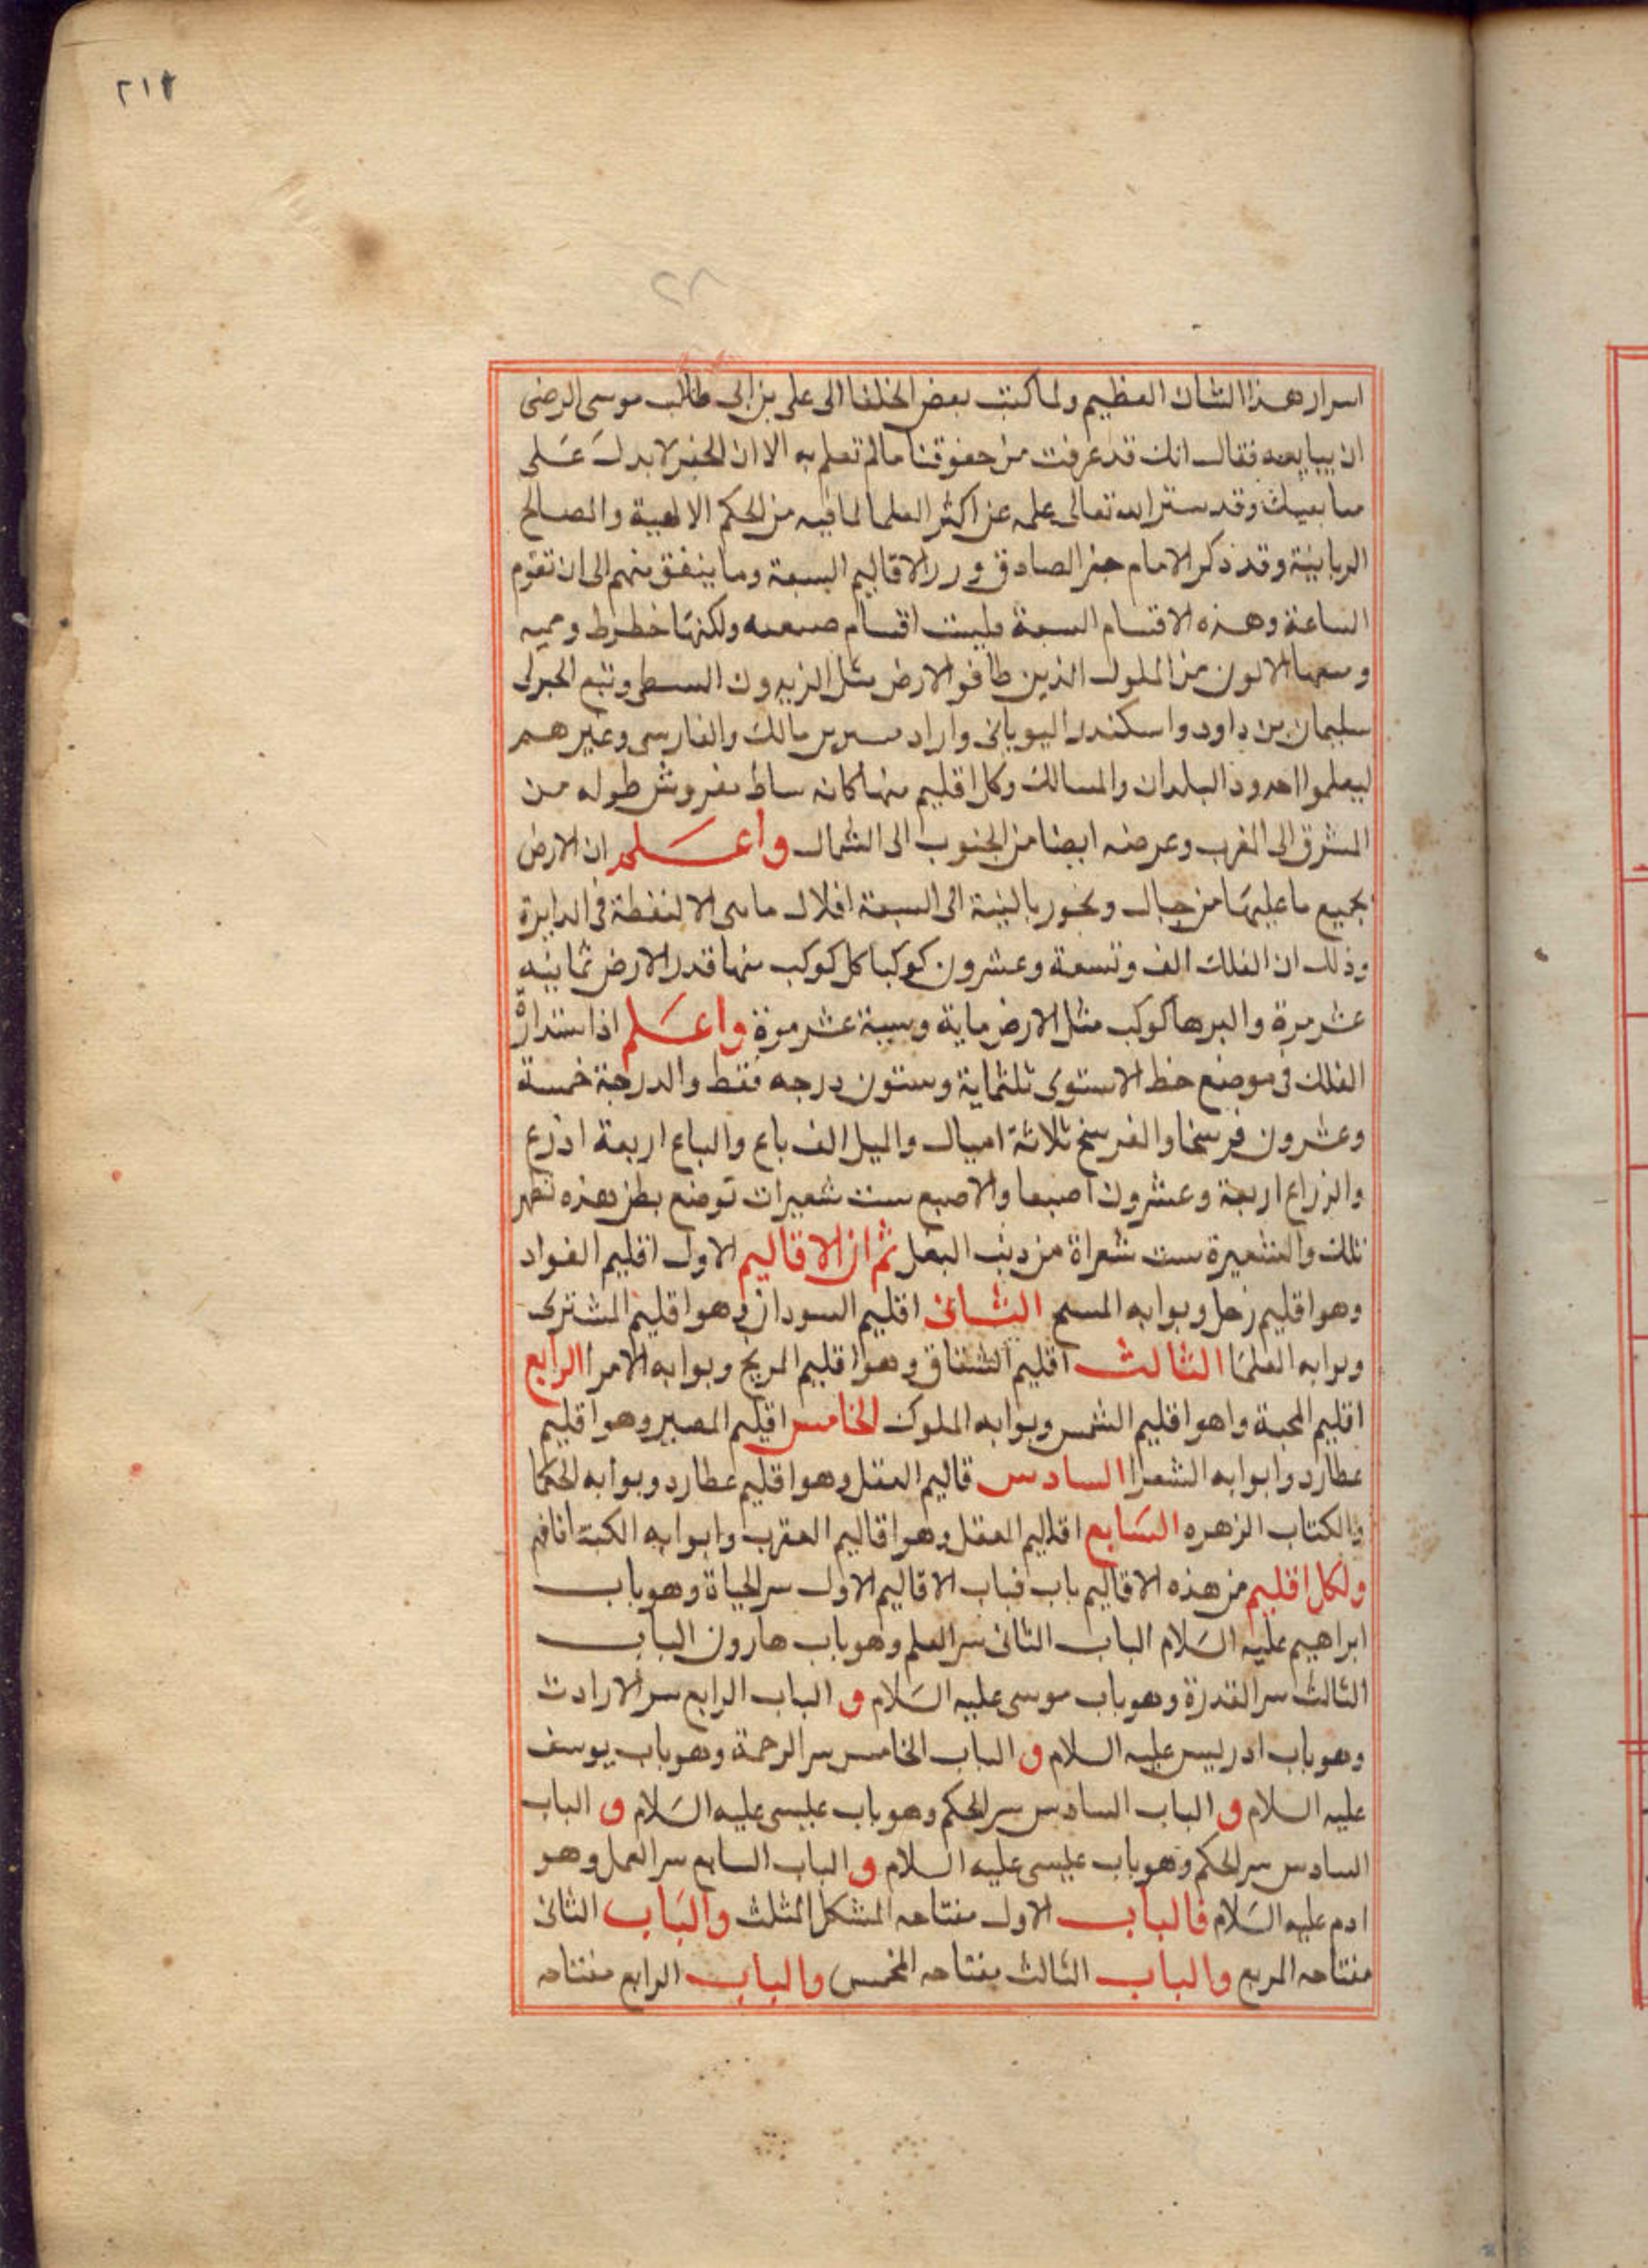 ٢١٢
٢٨
اسرار هذا الشان العظيم ولما كتب بعض الخلفا الى على بن ابى طالب موسى الرضى
ان يبايعه فقال انك قد عرفت من حقوقنا مالم تعلم به الا ان الجفر لا يدل على
مبايعيك وقد ستر الله تعالى علمه عن اكثر العلما لما فيه من الحكم الالهية والمصالح
الربانية وقد ذكر الامام جفر الصادق الاقاليم السبعة وما يتفق منهم الى ان تقوم
الساعة وهذه الاقسام السبعة فليست اقسام ولكنها خطوط
الاولون من الملوك الذين طافو الارض مثل وتبع
سليمان بن داود واسكندر اليونانى مالك والفارسى وغيرهم
ليعلموا حدود البلدان والمسالك وكل اقليم منها كانه بساط مفروش طوله من
المشرق الى المغرب وعرضه ايضا من الجنوب الى الشمال واعلم ان الارض
بجميع ما عليها من جبال وبحور بالنية الى السبعة افلاك ماهى الا لنقطة فى الدايرة
وذلك ان الفلك الف وتسعة وعشرون كوكبا كل كوكب منها قدر الارض ثمانيه
عشر مرة والبرها كوكب مثل الارض ماية وسية عشر مرة واعلم اذا ستدارة
الفلك فى موضع خط الاستوى ثلثماية وستون درجه فقط والدرجة خمسة
وعشرون فرسخا والفرسخ ثلاثة اميال والميل الف باع والباع اربعة اذرع
والزراع اربعة وعشرون اصبعا والاصبع ست شعيرات توضع بطن هذه تظهر
تلك والشعيرة ست شعراة من ذنب البغل ثم ان الاقاليم الاول اقليم الفواد
وهو اقليم زحل وبوابه المسيح الثانى اقليم السودان وهو اقليم المشترى
وبوابه العلما الثالث اقليم الشقاق وهو اقليم المريخ وبوابه الامرا الرابع
اقليم المحبة واهو اقليم الشمس وبوابه الملوك الخامس اقيلم المصير وهو اقليم
عطارد وابوابه الشعرا السادس قاليم العقل وهو اقليم عطارد وبوابه الحكما
والكتاب الزهره السابع اقاليم العقل وهو اقاليم العقرب وابوابه الكبتة انافهم
ولكل اقليم من هذه الاقاليم باب فباب الاقاليم الاول سر الحياة وهو باب
ابراهيم عليه السلام الباب الثانى سر العلم وهو باب هارون الباب
الثالث سر القدرة وهو باب موسى عليه السلام و الباب الرابع سر الارادت
وهو باب ادريس عليه السلام و الباب الخامس سر الرحمة وهو باب يوسف
عليه السلام و الباب السادس سر الحكم وهو باب عليسى عليه السلام و الباب
السادس سر الحكم وهو باب عليسى عليه السلام و الباب السابع سر العمل وهو
ادم عليه السلام فالباب الاول مفتاحه المشكل المثلث والباب الثانى
مفتاحه المربع والباب الثالث مفتاحه المخمس والباب الرابع مفتاحه